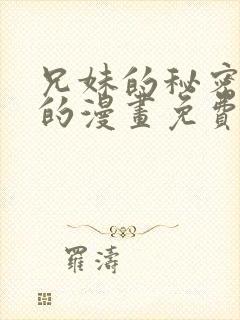 兄妹的秘密
的漫畫免費
羅濤